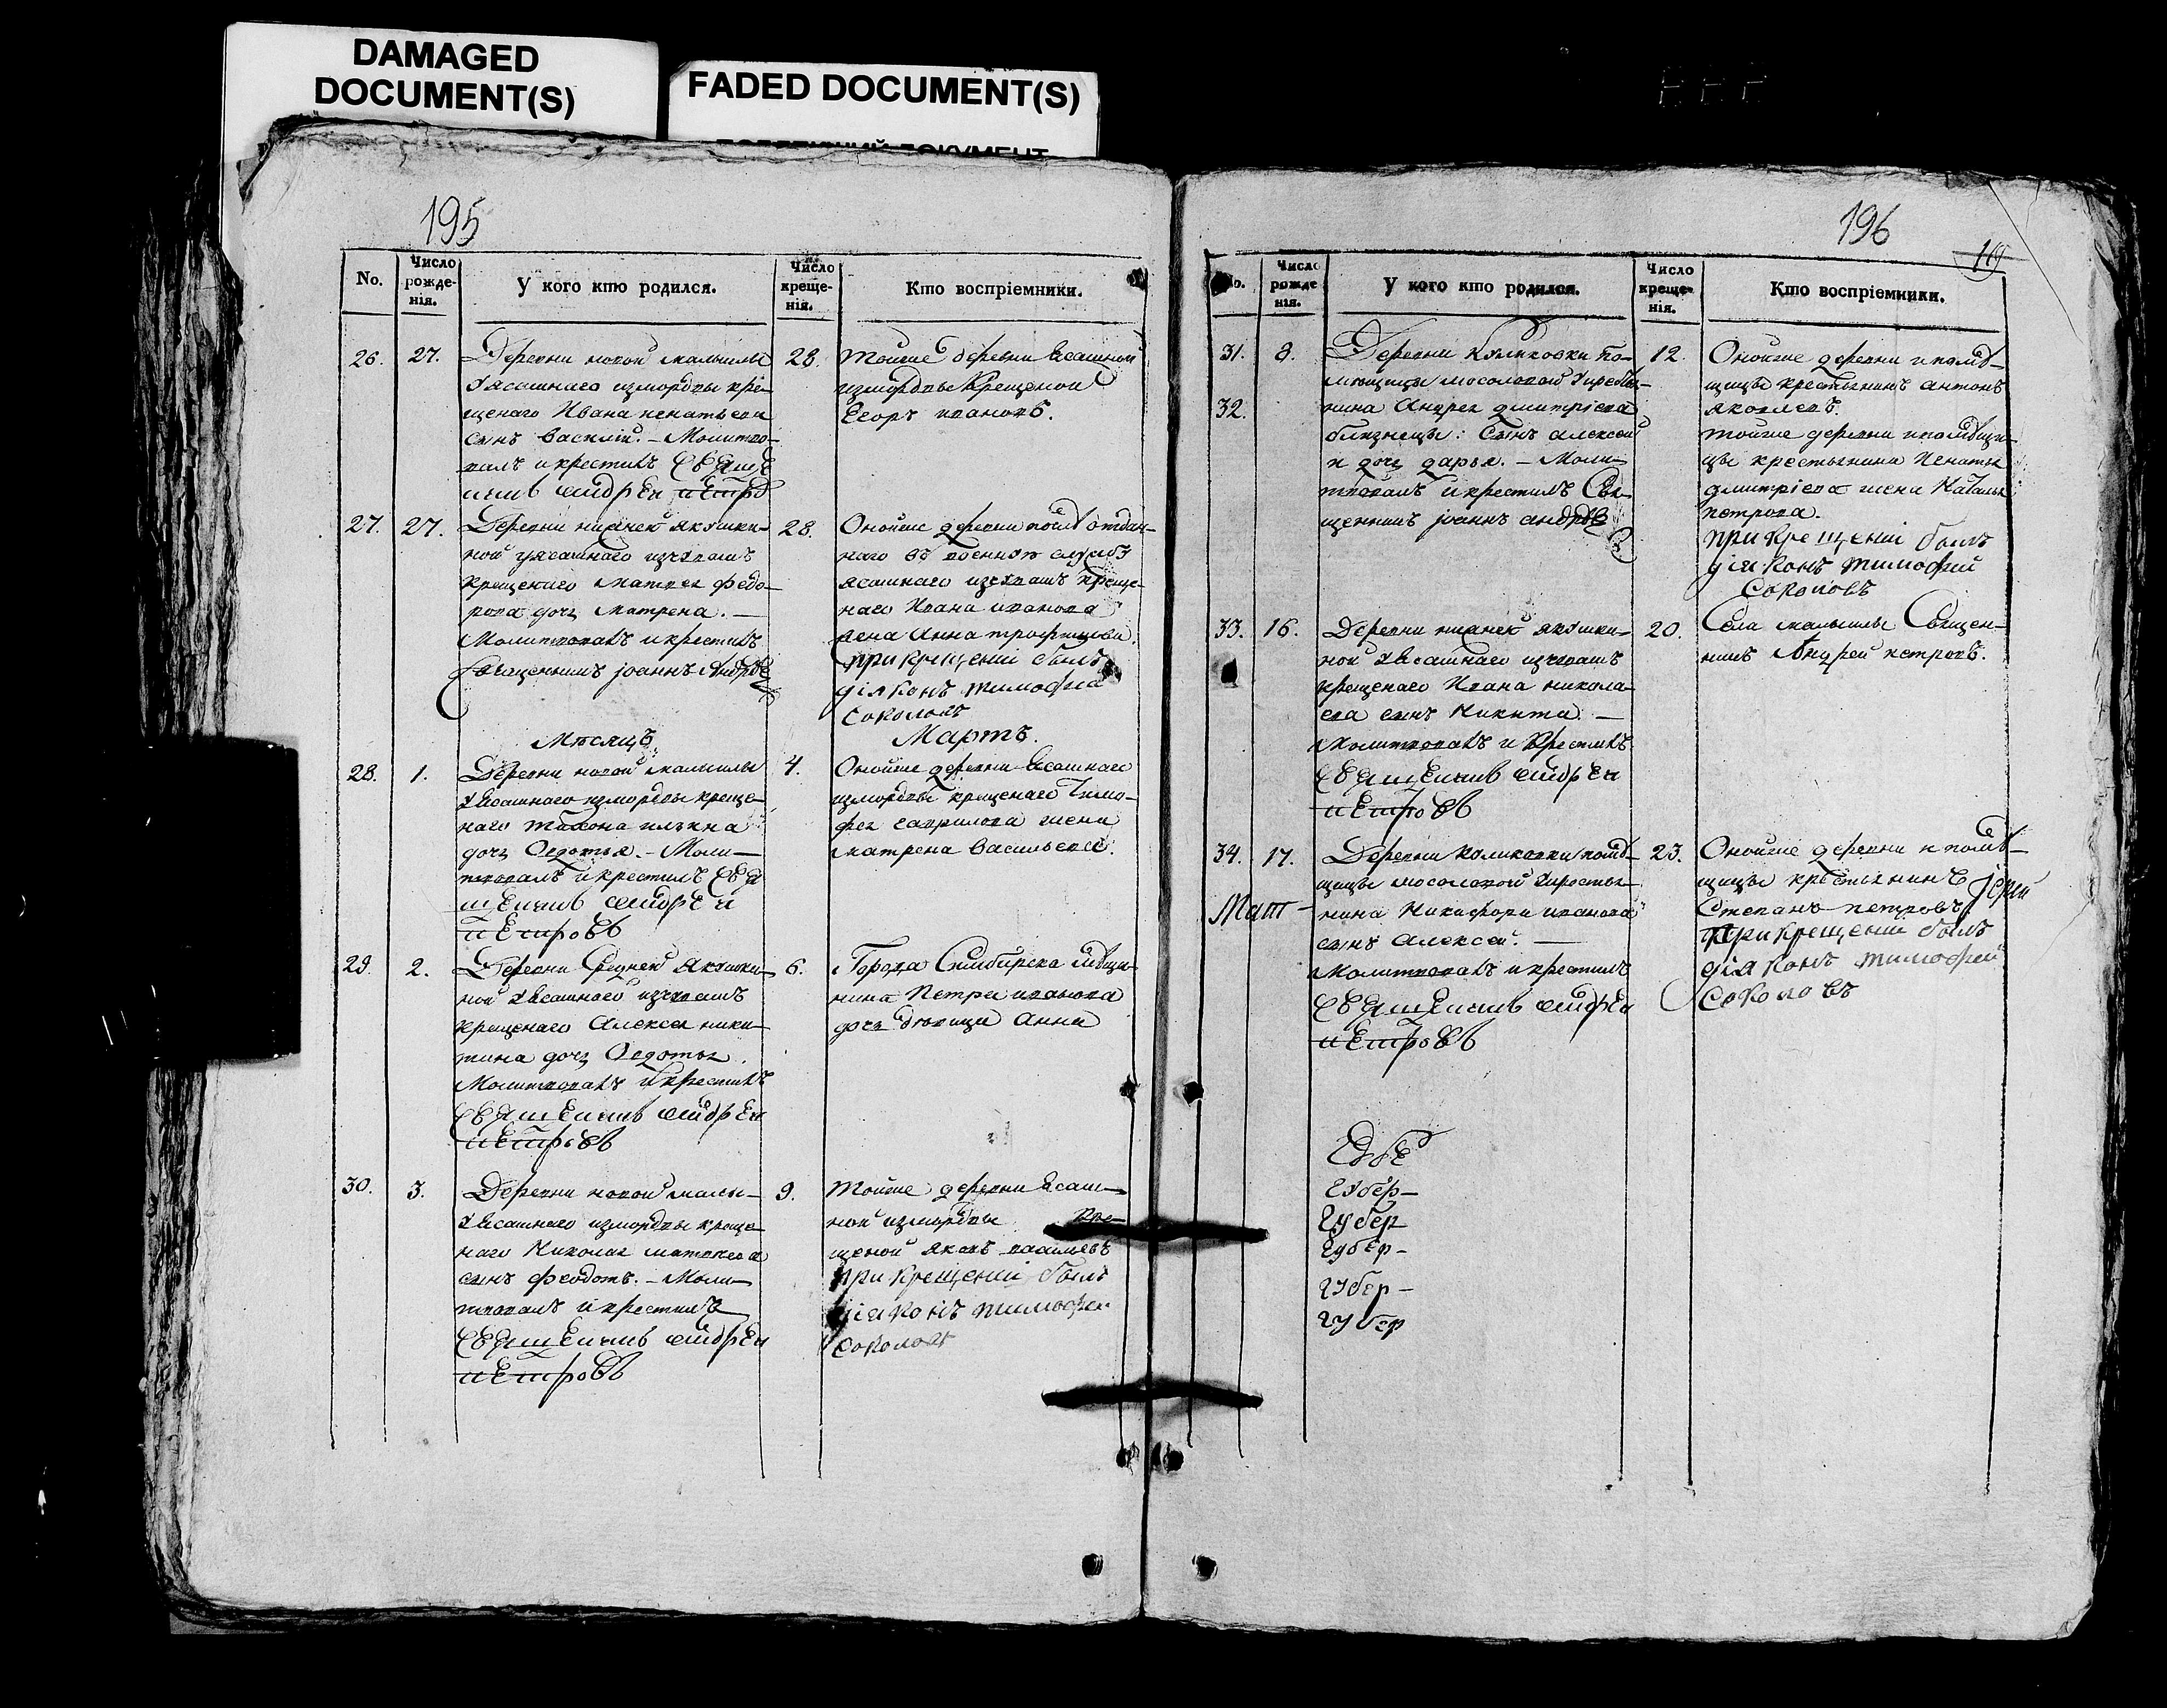 DAMAGED
DOCUMENT(S)
FADED DOCUMENT(S)
195
No.
Число рожде-нія.
У кого кто родился.
Число креще-нія.
Кто воспріемники.
26. 27.
Деревни новой малыклы
уясашнаго измордвы кре-
щенаго Ивана игнатьева
сынъ василій. – Молитво-
валъ и крестилъ Свяще
нникъ андрей петровъ
28.
Тойже деревни ясашной
измордвы крещеной
Егоръ ивановъ.
27. 27.
Деревни нижней якушки-
ной уясашнаго изчувашъ
крещенаго матвея федо-
рова дочь матрена. –
Молитвовалъ и крестилъ
Священникъ іоаннъ андрѣе
28.
Онойже деревни
наго въ военную службу
ясашнаго изчувашъ креще-
наго Ивана иванова
жена Анна трофимова.
при крещеніи былъ
діяконъ тимофей
соколовъ
Мѣсяцъ Мартъ.
28. 1.
Деревни новой малыклы
уясашнаго измордвы креще-
наго тихона ильина
дочь Федотья. – Моли-
твовалъ и крестилъ Свя
щенникъ андрей
петровъ
4.
Онойже деревни ясашнаго
измордвы крещенаго тимо-
фея гаврилова жена
матрена васильева.
29. 2.
Деревни средней якушки-
ной уясашнаго изчувашъ
крещенаго Алексея ники-
тина дочь Федотья.
Молитвовалъ и крестилъ
Священникъ андрей
петровъ
6.
Города Симбирска мѣща-
нина Петра иванова
дочь девица анна
30. 3.
Деревни новой малы-
уясашнаго измордвы креще-
наго Николая матвеева
сынъ феодотъ. – Моли-
твовалъ и крестилъ
Священникъ андрей
петровъ
9.
Тойже деревни ясаш-
ной измордвы кре-
щеной яковъ
при крещеніи былъ
діяконъ тимофей
соколовъ
196
19
No.
Число рожде нія.
У кого кто родился.
Число креще-нія.
Кто воспріемники.
31. 8.
32.
Деревни куликовки по-
мещицы мосоловой укрестья-
нина Андрея дмитріева
близнецы: сынъ алексей
и дочь дарья. – Моли-
твовалъ и крестилъ Свя-
щенникъ іоаннъ андрѣе
12.
Онойже деревни и помѣ-
щицы крестьянинъ антонъ
яковлевъ.
тойже деревни и помѣщи-
цы крестьянина Игнатья
дмитріева жена Наталья
петрова.
при крещеніи былъ
діяконъ тимофей
соколовъ
33. 16.
Деревни нижней якушки-
ной уясашнаго изчувашъ
крещенаго Ивана никола-
ева сынъ Никита. –
Молитвовалъ и крестилъ
Священникъ андрей
петровъ
20.
Села малыклы Священ-
никъ Андрей петровъ.
34. 17.
Деревни куликовки помѣ-
щицы мосоловой укрестья-
нина Никифора иванова
сынъ алексей. –
Молитвовалъ и крестилъ
Священникъ андрей
петровъ
23.
Онойже деревни и помѣ-
щицы крестьянинъ
Степанъ петровъ іерей
при крещеніи былъ
діяконъ тимофей
соколовъ
Мат-
Губер-
губер
губер-
губер-
губер